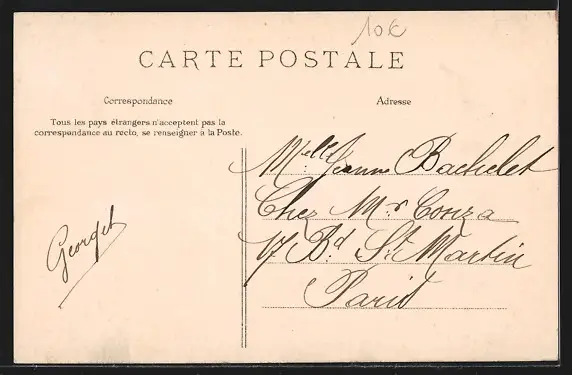 10€
CARTE POSTALE
Correspondance
Adresse
Tous les pays étrangers n'acceptent pas la
correspondance au recto, se renseigner à la Poste.
Melle Jeanne Bachelet
Chez Mr Couza
17 Bd. St. Martin
Paris
Georget